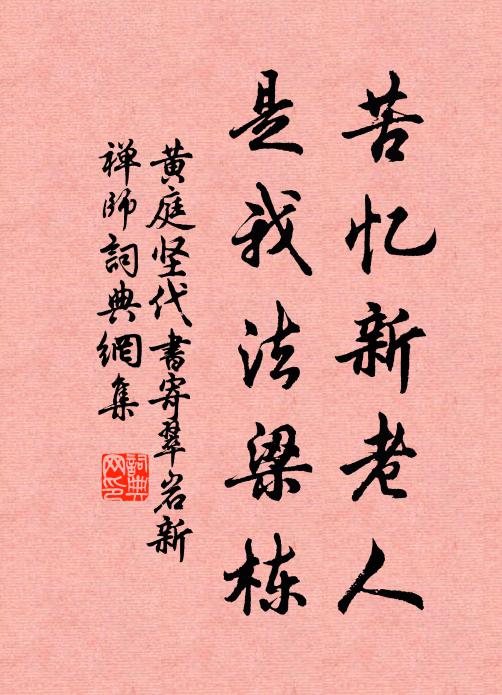 苦忆新老人
是我法梁栋
黄庭坚代书寄翠岩新
禅师詞典網集
詞典
网印